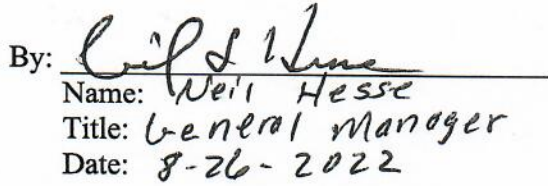 By:
Name: Neil Hesse
Title: General Manager
Date: 8-26-2022